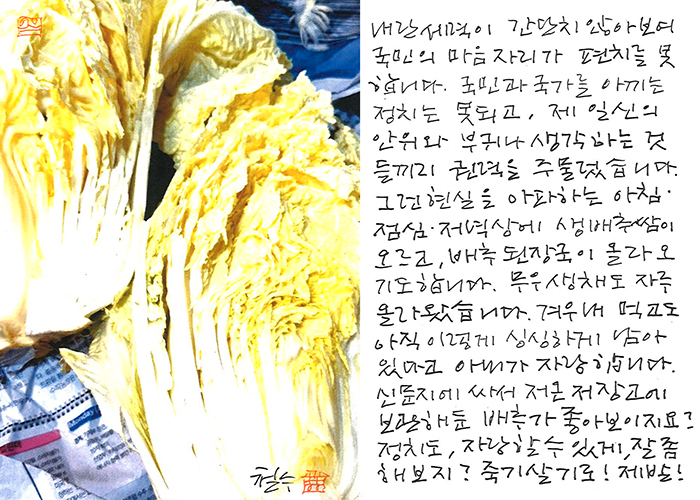 내란세력이 간단치 않아보여
국민의 마음자리가 편치를 못
합니다. 국민과 국가를 아끼는
정치는 못되고, 제 일신의
안위와 부귀나 생각하는 것
들끼리 권력을 주물렀습니다.
그런현실을 아파하는 아침·
점심·저녁상에 생배추쌈이
오르고, 배추 된장국이 올라오
기도합니다. 무우생채도 자주
올라왔습니다. 겨우내 먹고도
아직 이렇게 싱싱하게 남아
있다고 아내가 자랑합니다.
신문지에 싸서 저온저장고에
보관해둔 배추가 좋아보이지요?
정치도, 자랑할수 있게, 잘 좀
해보지? 죽기살기로! 제발!
철수
Monday